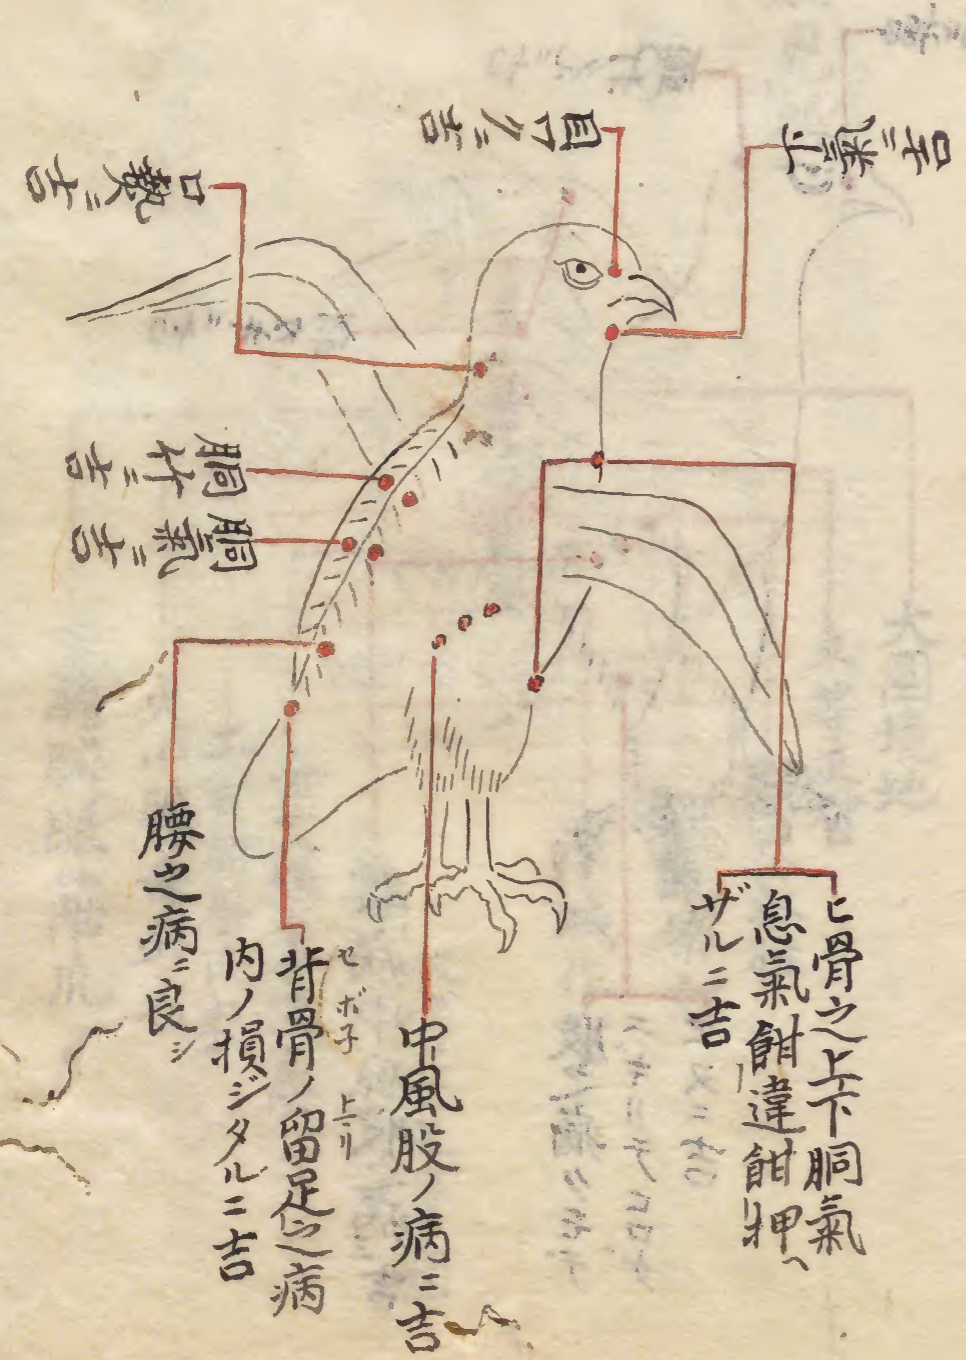 目ワクニ吉
口熱ニ吉
胴竹ニ吉
胴氣ニ吉
ヒ骨之上下胴氣
息氣餌違餌押ヘ
ザルニ吉
中風股ノ病ニ吉
セボ子
背骨ノ留足之病
内ノ損ジタルニ吉
腰之病ニ良シ